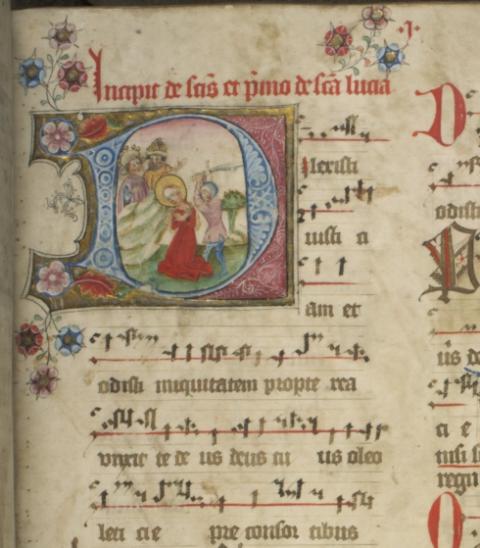 .i.
Incipit de scīs et p̄mo de scā lucia
Dilexisti
iusti ci
am et
odisti iniquitatem propte rea
vnxit te de us deus tu us oleo
leti cie pre consor tibus
D
odisti